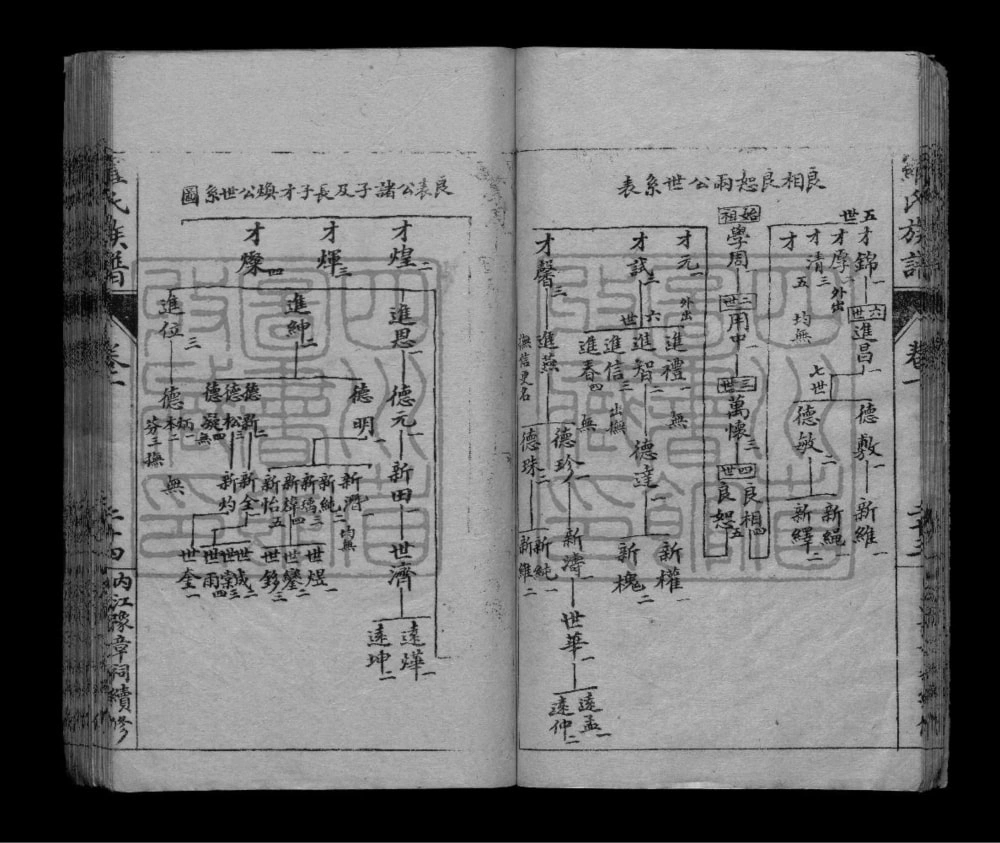 良相良恕兩公世系表
五世
才錦一
才厚二外出
才清三
才五
均無
六世
進昌一
七世
德敷一
德敏二
新維一
新繩一
新繹二
始祖
學周
二世
用中一
三世
萬懷三
四世
良相四
良恕五
才元一外出
才試二
才馨三
六世
進禮一無
進智二
進信三出撫
進春四無
進燕一
撫信更名
德達一
新權一
新槐二
德珍一
德珠二
新濤一
新純一
新維二
世華一
遠孟一
遠仲二
良表公諸子及長子才煥公世系圖
才煌二
才煇三
才燦四
進思一
進紳二
進位三
德元一
德明一
德新二
德松三
德凝四無
德炳一
本二
芬三撫
無
新田一
新潛一均無
新純二
新禹三
新煒四
新怡五
新全一
新灼
世濟一
世煜一
世鑾二
世鈔三
世成
世棠三
世雨四
世奎一
遠燁一
遠坤二
羅氏族譜
卷一
內江豫章祠續修